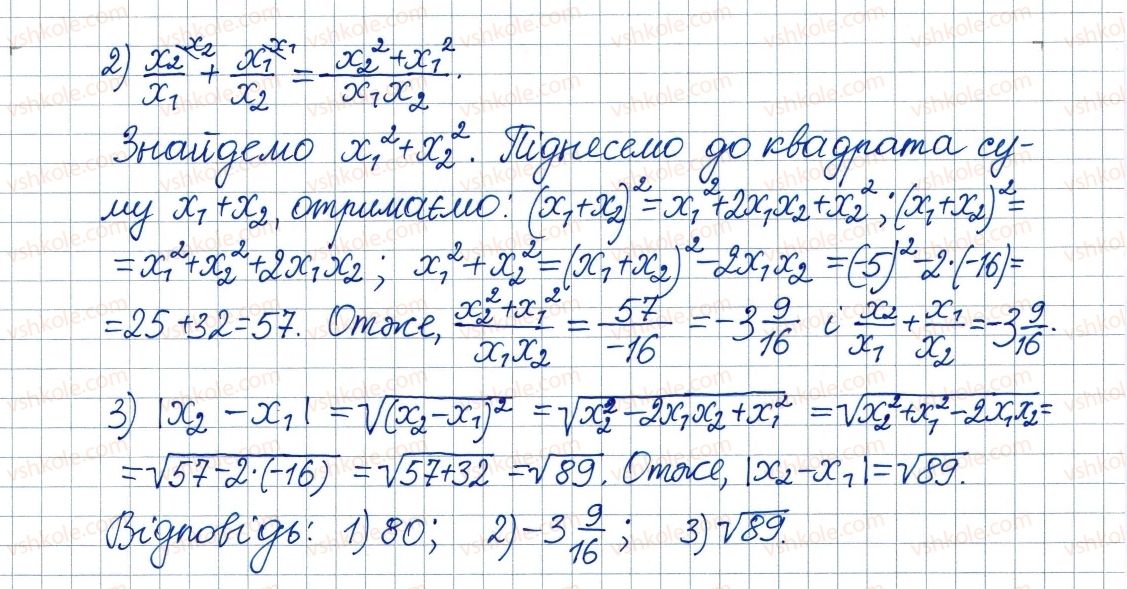 2) x₂/x₁ + x₁/x₂ = (x₂² + x₁²)/(x₁x₂).
Знайдемо x₁² + x₂². Піднесемо до квадрата су-
му x₁ + x₂, отримаємо: (x₁ + x₂)² = x₁² + 2x₁x₂ + x₂²; (x₁ + x₂)² =
= x₁² + x₂² + 2x₁x₂; x₁² + x₂² = (x₁ + x₂)² − 2x₁x₂ = (−5)² − 2·(−16) =
= 25 + 32 = 57. Отже, (x₂² + x₁²)/(x₁x₂) = 57/−16 = −3 9/16 і x₂/x₁ + x₁/x₂ = −3 9/16.
3) |x₂ − x₁| = √(x₂ − x₁)² = √x₂² − 2x₁x₂ + x₁² = √x₂² + x₁² − 2x₁x₂ =
= √57 − 2·(−16) = √57 + 32 = √89. Отже, |x₂ − x₁| = √89.
Відповідь: 1) 80; 2) −3 9/16; 3) √89.